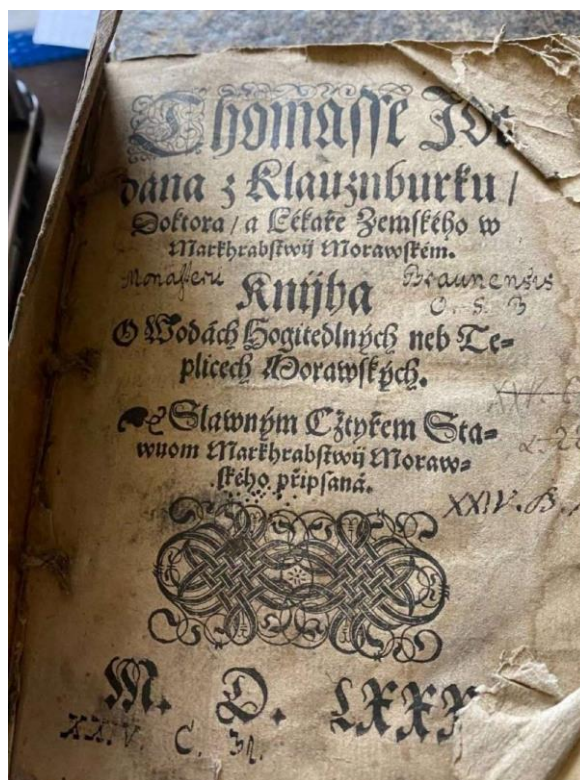 Thomasse Jor
dána z Klauznburku /
Doktora / a Lékaře Zemského w
Markhrabstwij Morawském.
Monasterii Braunensis
O. S. B
Knijha
O Wodách Hogitedlných neb Te=
plicech Morawských.
Slawným Cžtyřem Sta=
wuom Markhrabstwij Moraw=
ského připsaná.
XXIV. B.
M. D. LXXX
XXIV. C.